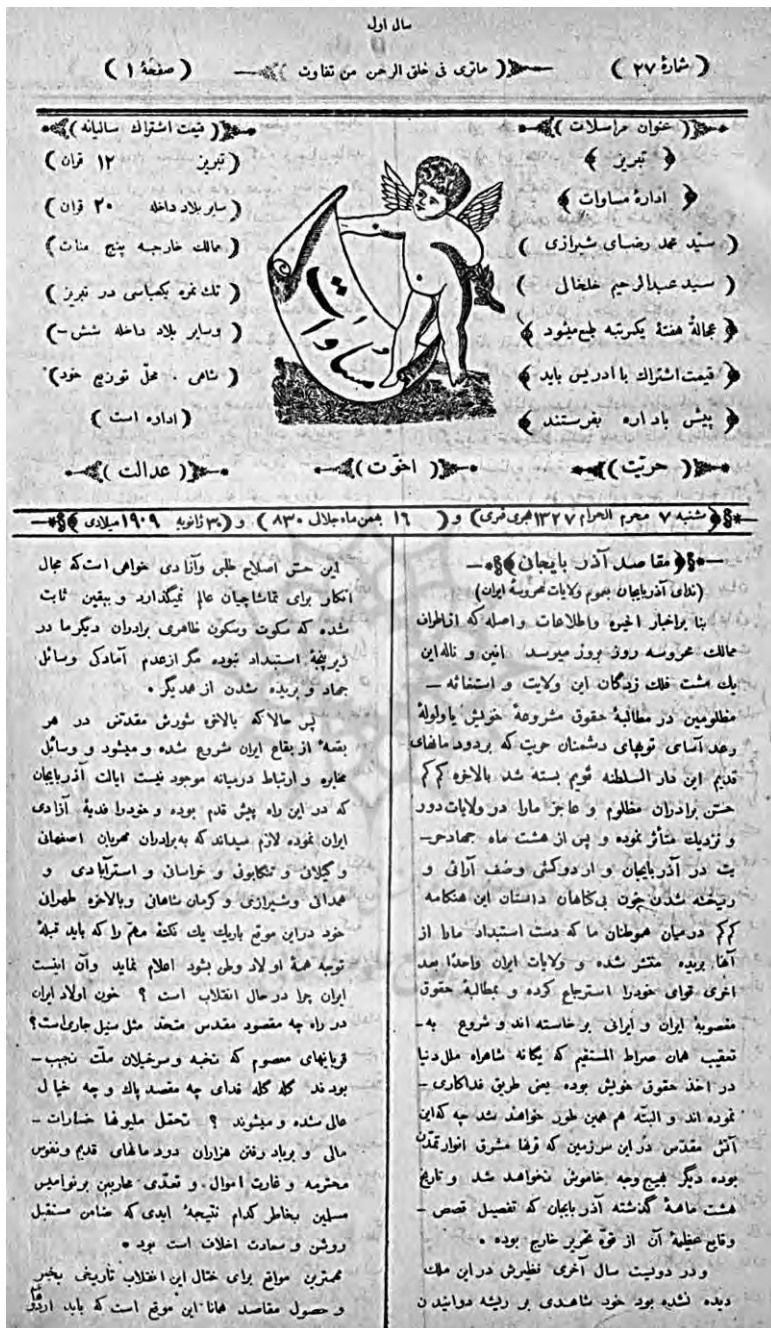 سال اول
( شمارهٔ ۲۷ )
( ماتری فی خلق الرحمن من تفاوت )
( صفحهٔ ۱ )
( عنوان مراسلات )
( تبریز )
( ادارهٔ مساوات )
( سیّد محمد رضای شیرازی )
( سید عبدالرحیم خلخالی )
( عجالةً هفتهٔ یکرتبه طبع میشود )
( قیمت اشتراك با ادریس باید )
( پیش باداره بفرستند )
مساوات
( قیمت اشتراك سالیانه )
( تبریز ۱۲ قران )
( سایر بلاد داخله ۲۰ قران )
( ممالك خارجه پنج منات )
( تك نمره یکعباسی در تبریز )
( وسایر بلاد داخله شش -)
( شاهی . محلّ توزیع خود)
( اداره است )
( حریّت )
( اخوّت )
( عدالت )
( شنبه ۷ محرم الحرام ۱۳۲۷ هجری قمری) و ( ۱۶ بهمن ماه جلالی ۸۳۰ ) و (۳۰ ژانویه ۱۹۰۹ میلادی )
( مقاصد آذربایجانی )
(ندای آذربایجان بعموم ولایات محروسهٔ ایران)
بنا براخبار اخیره واطلاعات واصله که ازاطراف
ممالك محروسه روز بروز میرسد انین و ناله این
یك مشت فلك زدگان این ولایت و استغاثه -
مظلومین در مطالبهٔ حقوق مشروعهٔ خویش باولولهٔ
رعد آسای توپهای دشمنان حریت که بردودمانهای
قدیم این دار السلطنه قویم بسته شد بالاخره کم کم
حسّ برادران مظلوم و عاجز مارا در ولایات دور
و نزدیك متأثر نموده و پس از هشت ماه جهادحر-
یت در آذربایجان و اردوکشی وصف آرائی و
ریخته شدن خون بی‌گناهان داستان این هنگامه
کم کم درمیان هموطنان ما که دست استبداد مارا از
آنها بریده منتشر شده و ولایات ایران واحداً بعد
اخری قوای خودرا استرجاع کرده و بمطالبهٔ حقوق
مغصوبهٔ ایران و ایرانی برخاسته اند و شروع به-
تعقیب همان صراط المستقیم که یگانه شاهراه ملل دنیا
در اخذ حقوق خویش بوده یعنی طریق فداکاری -
نموده اند و البتّه هم همین طور خواهند شد چه که این
آتش مقدّس در این سرزمین که قرنها مشرق انوار تمدّن
بوده دیگر بهیچ وجه خاموش نخواهد شد و تاریخ
هشت ماههٔ گذشته آذربایجان که تفصیل قصص -
وقایع عظیمهٔ آن از قوّه تحریر خارج بوده .
ودر دویست سال آخری نظیرش در این ملك
دیده نشده بود خود شاهدی بر ریشه دوانیدن
این حسّ اصلاح طلبی وآزادی خواهی است که مجال
انکار برای تماشاچیان عالم نمیگذارد و بیقین ثابت
شده که سکوت وسکون ظاهری برادران دیگر ما در
زیر پنجهٔ استبداد نبوده مگر از عدم آمادگی وسائل
جهاد و بریده شدن از همدیگر .
پس حالا که بالاخره شورش مقدّس در هر
بقعهٔ از بقاع ایران شروع شده و میشود و وسائل
مخابره و ارتباط درمیانه موجود نیست ایالت آذربایجان
که در این راه پیش قدم بوده و خودرا فدیهٔ آزادی
ایران نموده لازم میداند که به برادران مهربان اصفهانی
و گیلانی و تنکابونی و خراسانی و استرآبادی و
همدانی وشیرازی و کرمان شاهانی وبالاخره طهرانی
خود دراین موقع باریك یك نکتهٔ مهمّ را که باید قبلهٔ
توجه همهٔ اولاد وطن بشود اعلام نماید وآن اینست
ایران چرا در حال انقلاب است ؟ خون اولاد ایران
در راه چه مقصود مقدس متحد مثل سیل جاری است؟
قربانیهای معصوم که نخبه وسرخیلان ملّت نجیب-
بودند گله گله فدای چه مقصد پاك و چه خیال
عالی شده و میشوند ؟ تحمّل ملیونها خسارات -
مالی و برباد رفتن هزاران دودمانهای قدیم ونفوس
محترمه و غارت اموال و تعدّی محاربین برنوامیس
مسلمین بخاطر کدام نتیجهٔ ابدی که ضامن مستقبل
روشن و سعادت اخلاف است بود .
مهمترین مواقع برای این انقلاب تاریخی
و حصول مقاصد همانا این موقع است که باید